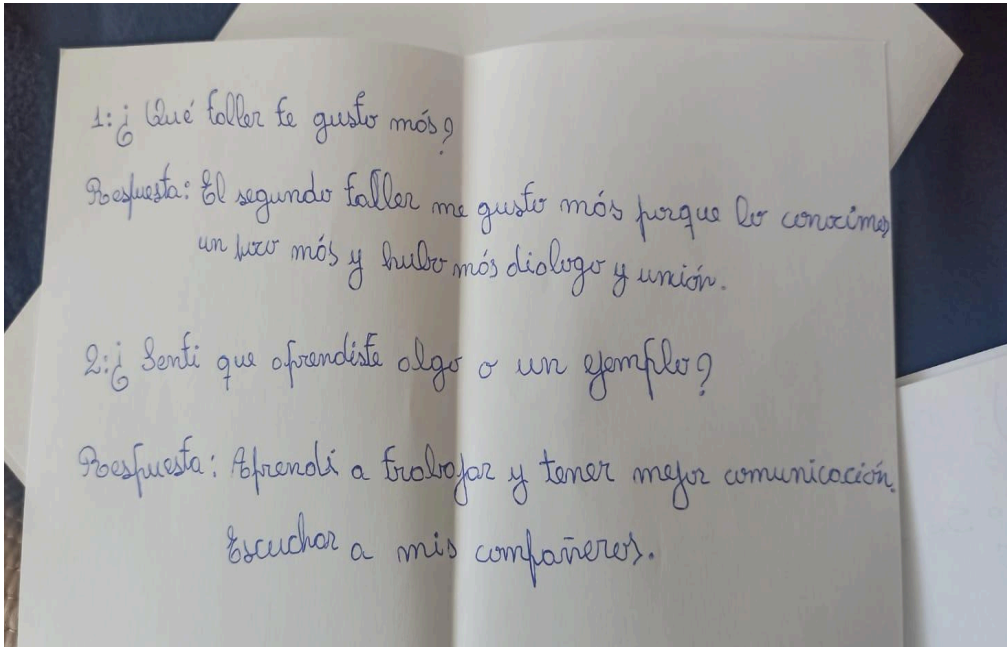 1: ¿Qué taller te gusto más?
Respuesta: El segundo taller me gusto más porque lo conocimos
un poco más y hubo más dialogo y unión.
2: ¿Senti que aprendiste algo o un ejemplo?
Respuesta: Aprendí a trabajar y tener mejor comunicación.
Escuchar a mis compañeros.